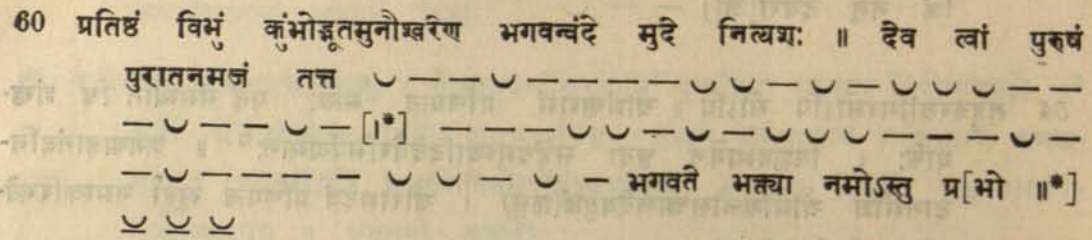 60 प्रतिष्ठं विभुं कुंभोद्भूतमुनौश्वरेण भगवन्वंदे मुदे नित्यशः ॥ देव त्वां पुरुषं
पुरातनमजं तत्त ⏑ — — ⏑ — — — — — ⏑ ⏑ — ⏑ — ⏑ ⏑ ⏑ — —
— ⏑ — — ⏑ — [।*] — — — ⏑ ⏑ — ⏑ — ⏑ ⏑ ⏑ — — — ⏑ —
— ⏑ — — — — ⏑ ⏑ — ⏑ — भगवते भक्त्या नमोऽस्तु प्र[भो ॥*]
⏑ ⏑ ⏑